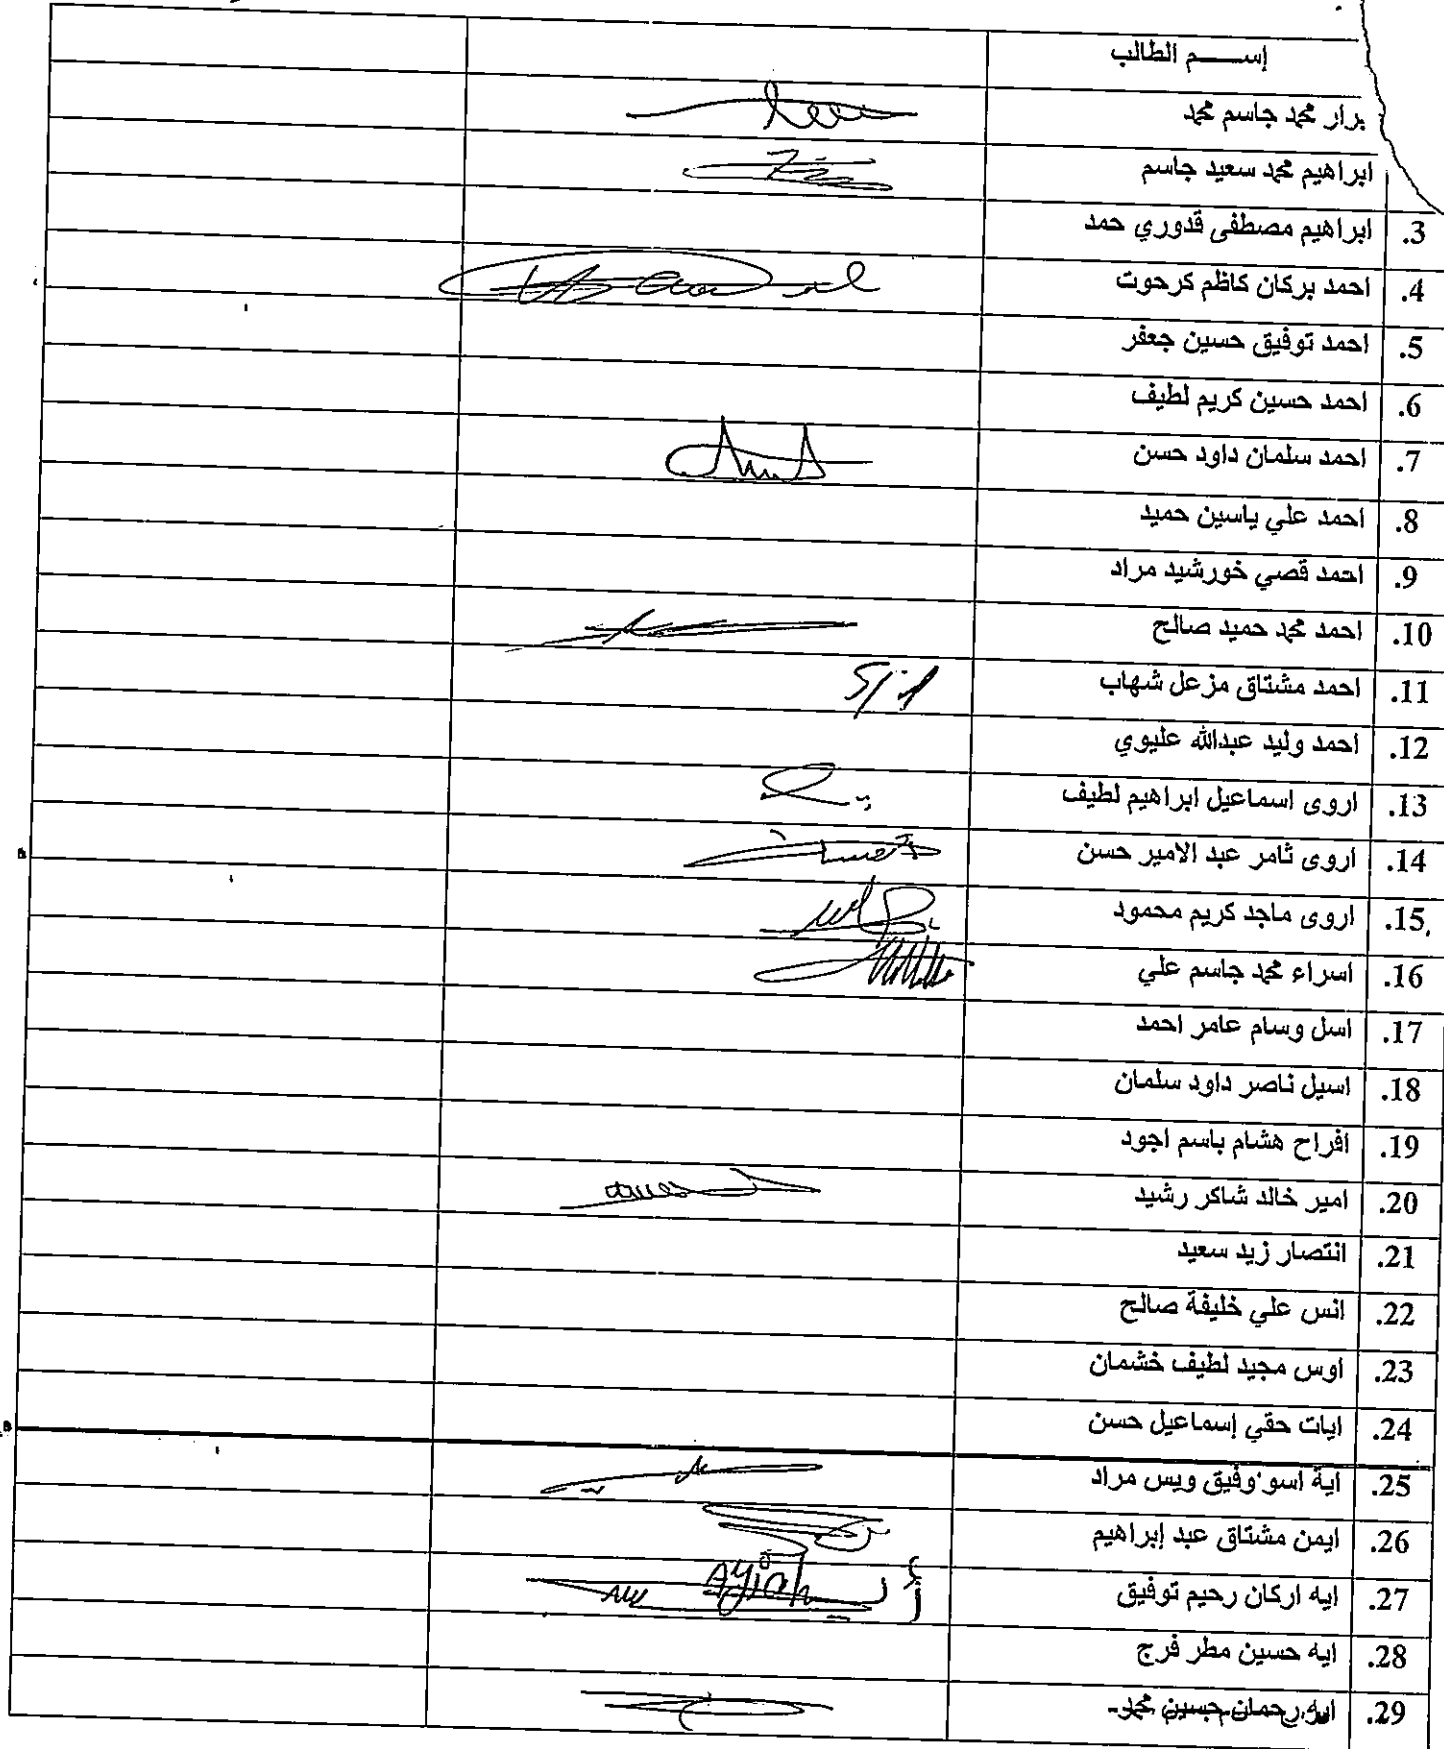 إســـم الطالب
برار محمد جاسم محمد
ابراهيم محمد سعيد جاسم
3. ابراهيم مصطفى قدوري حمد
4. احمد بركان كاظم كرحوت
5. احمد توفيق حسين جعفر
6. احمد حسين كريم لطيف
7. احمد سلمان داود حسن
8. احمد علي ياسين حميد
9. احمد قصي خورشيد مراد
10. احمد محمد حميد صالح
11. احمد مشتاق مزعل شهاب
12. احمد وليد عبدالله عليوي
13. اروى اسماعيل ابراهيم لطيف
14. اروى ثامر عبد الامير حسن
15. اروى ماجد كريم محمود
16. اسراء محمد جاسم علي
17. اسل وسام عامر احمد
18. اسيل ناصر داود سلمان
19. افراح هشام باسم اجود
20. امير خالد شاكر رشيد
21. انتصار زيد سعيد
22. انس علي خليفة صالح
23. اوس مجيد لطيف خشمان
24. ايات حقي إسماعيل حسن
25. اية اسو وفيق ويس مراد
26. ايمن مشتاق عبد إبراهيم
27. ايه اركان رحيم توفيق
28. ايه حسين مطر فرج
29. ايه رحمان حسين محمد